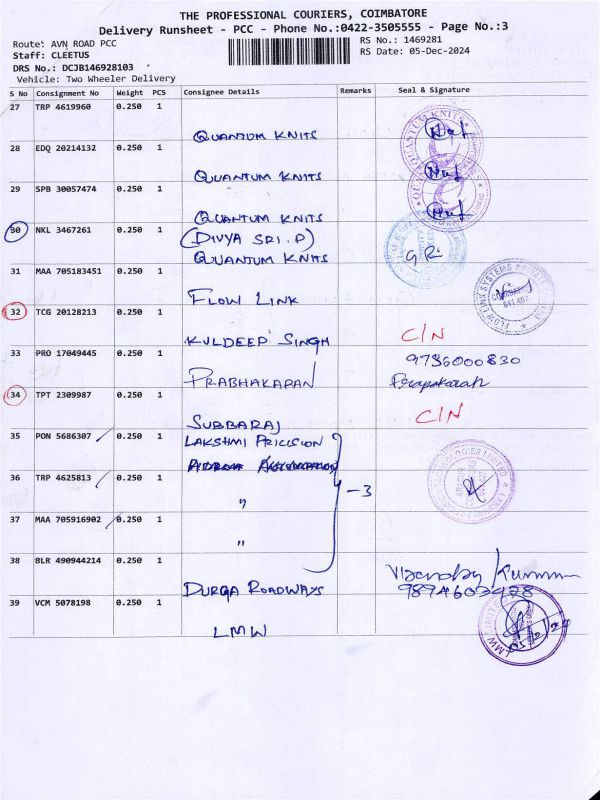 THE PROFESSIONAL COURIERS, COIMBATORE
Delivery Runsheet - PCC - Phone No.:0422-3505555 - Page No.:3
Route: AVN ROAD PCC
RS No.: 1469281
Staff: CLEETUS
RS Date: 05-Dec-2024
DRS No.: DCJB146928103
Vehicle: Two Wheeler Delivery
S No Consignment No Weight PCS Consignee Details Remarks Seal & Signature
27 TRP 4619960 0.250 1
QUANTUM KNITS
28 EDQ 20214132 0.250 1
QUANTUM KNITS
29 SPB 30057474 0.250 1
QUANTUM KNITS
30 NKL 3467261 0.250 1 (DIVYA SRI.P)
QUANTUM KNITS
31 MAA 705183451 0.250 1
FLOW LINK
32 TCG 20128213 0.250 1
KULDEEP SINGH C/N
33 PRO 17049445 0.250 1 9736000830
PRABHAKARAN
34 TPT 2309987 0.250 1
SUBBARAJ C/N
35 PON 5686307 0.250 1 LAKSHMI PRICISION
36 TRP 4625813 0.250 1
" -3
37 MAA 705916902 0.250 1
"
38 BLR 490944214 0.250 1
DURGA ROADWAYS
39 VCM 5078198 0.250 1
LMW